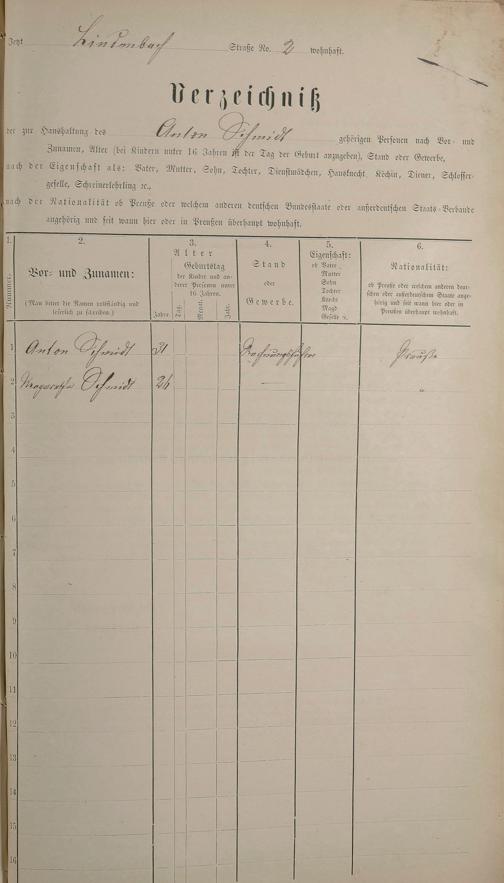 Jetzt Lindenbach Straße No. 2 wohnhaft.
Verzeichniß
der zur Haushaltung des Anton Schmidt gehörigen Personen nach Vor- und
Zunamen, Alter (bei Kindern unter 16 Jahren ist der Tag der Geburt anzugeben), Stand oder Gewerbe,
nach der Eigenschaft als: Vater, Mutter, Sohn, Tochter, Dienstmädchen, Hausknecht, Köchin, Diener, Schlosser-
geselle, Schreinerlehrling ꝛc.,
nach der Nationalität ob Preuße oder welchem anderen deutschen Bundesstaate oder außerdeutschen Staats-Verbande
angehörig und seit wann hier oder in Preußen überhaupt wohnhaft.
1.
Nummer.
2.
Vor- und Zunamen:
(Man bittet die Namen vollständig und
leserlich zu schreiben.)
3.
Alter
Geburtstag
der Kinder und an-
derer Personen unter
16 Jahren.
Jahre
Tag.
Monat.
Jahr.
4.
Stand
oder
Gewerbe.
5.
Eigenschaft:
ob Vater
Mutter
Sohn
Tochter
Knecht
Magd
Geselle ꝛc.
6.
Nationalität:
ob Preuße oder welchem anderen deut-
schen oder außerdeutschen Staate ange-
hörig und seit wann hier oder in
Preußen überhaupt wohnhaft.
1 Anton Schmidt 31 Rechnungsführer Preuße
2 Schmidt 26 — "
3
4
5
6
7
8
9
10
11
12
13
14
15
16